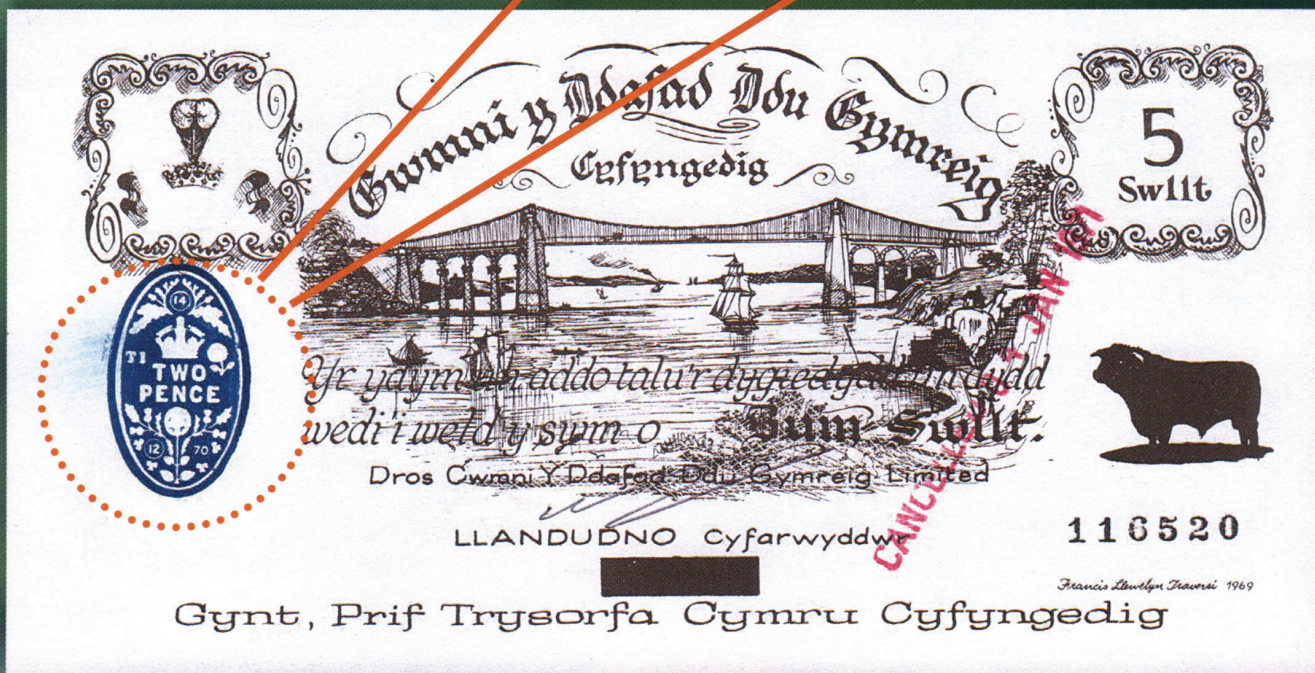 Gwmni y Ddafad Ddu Gymreig
Cyfyngedig
5
Swllt
14
T1
TWO
PENCE
12 70
Yr ydym yn addo talu'r dygiedydd dydd
wedi i weld y swm o Swllt.
Dros Cwmni Y Ddafad Ddu Gymreig Limited
LLANDUDNO Cyfarwyddwr
CANCELLED JAN
116520
Francis Llewelyn Traversi 1969
Gynt, Prif Trysorfa Cymru Cyfyngedig